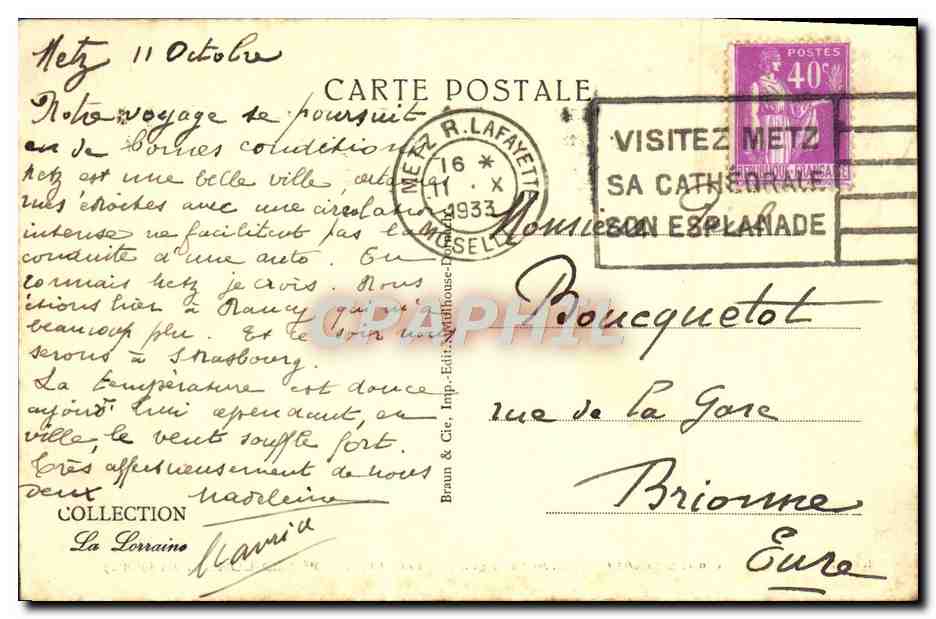 Metz 11 Octobre
CARTE POSTALE
Notre voyage se poursuit
en de bonnes conditions
Metz est une belle ville,
rues étroites avec une circulation
intense ne facilitant pas la
conduite d'une auto. En
connais Metz je crois. Nous
étions hier à Nancy qui m'a
beaucoup plu. Et ce soir nous
serons à Strasbourg.
La température est douce
aujourd'hui cependant, en
ville, le vent souffle fort.
Très affectueusement de nous
deux Madeleine
Maurice
COLLECTION
La Lorraine
Braun & Cie, Imp.-Edit., Mulhouse-Dornach
METZ R. LAFAYETTE
16 *
11 . X
1933
MOSELLE
VISITEZ METZ
SA CATHÉDRALE
SON ESPLANADE
POSTES
40c
REPUBLIQUE FRANÇAISE
Monsieur
Boucquetot
rue de la Gare
Brionne
Eure
CPAPHIL